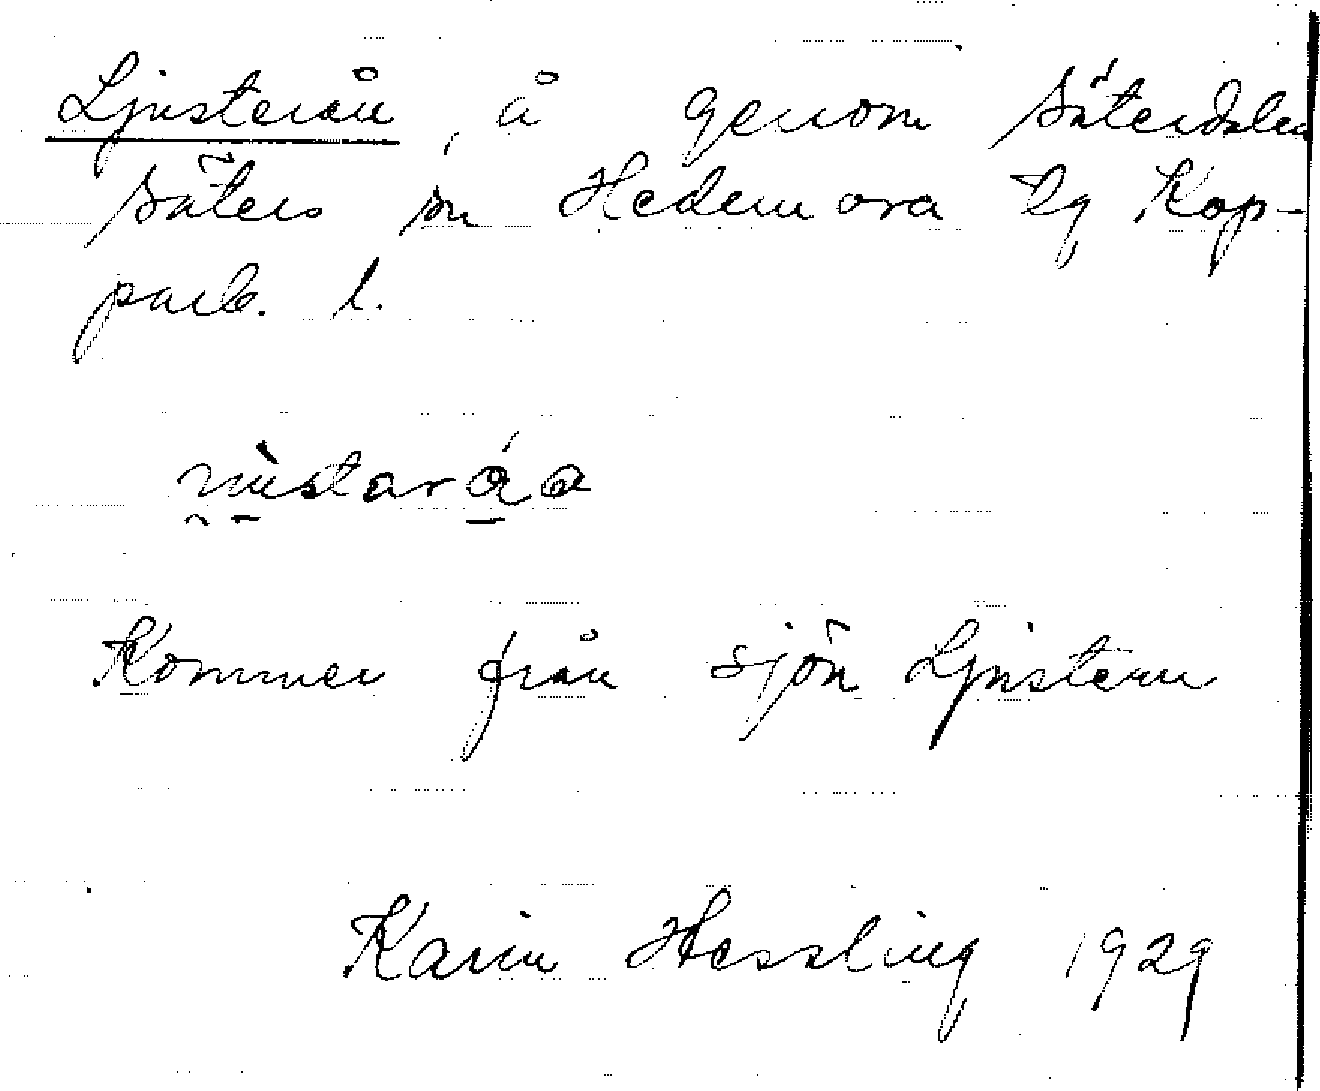 Ljusterån, å genom Säterdalen
Säters sn Hedemora tg Kop-
parb. l.
Kommer från sjön Ljustern
Karin Hessling 1929